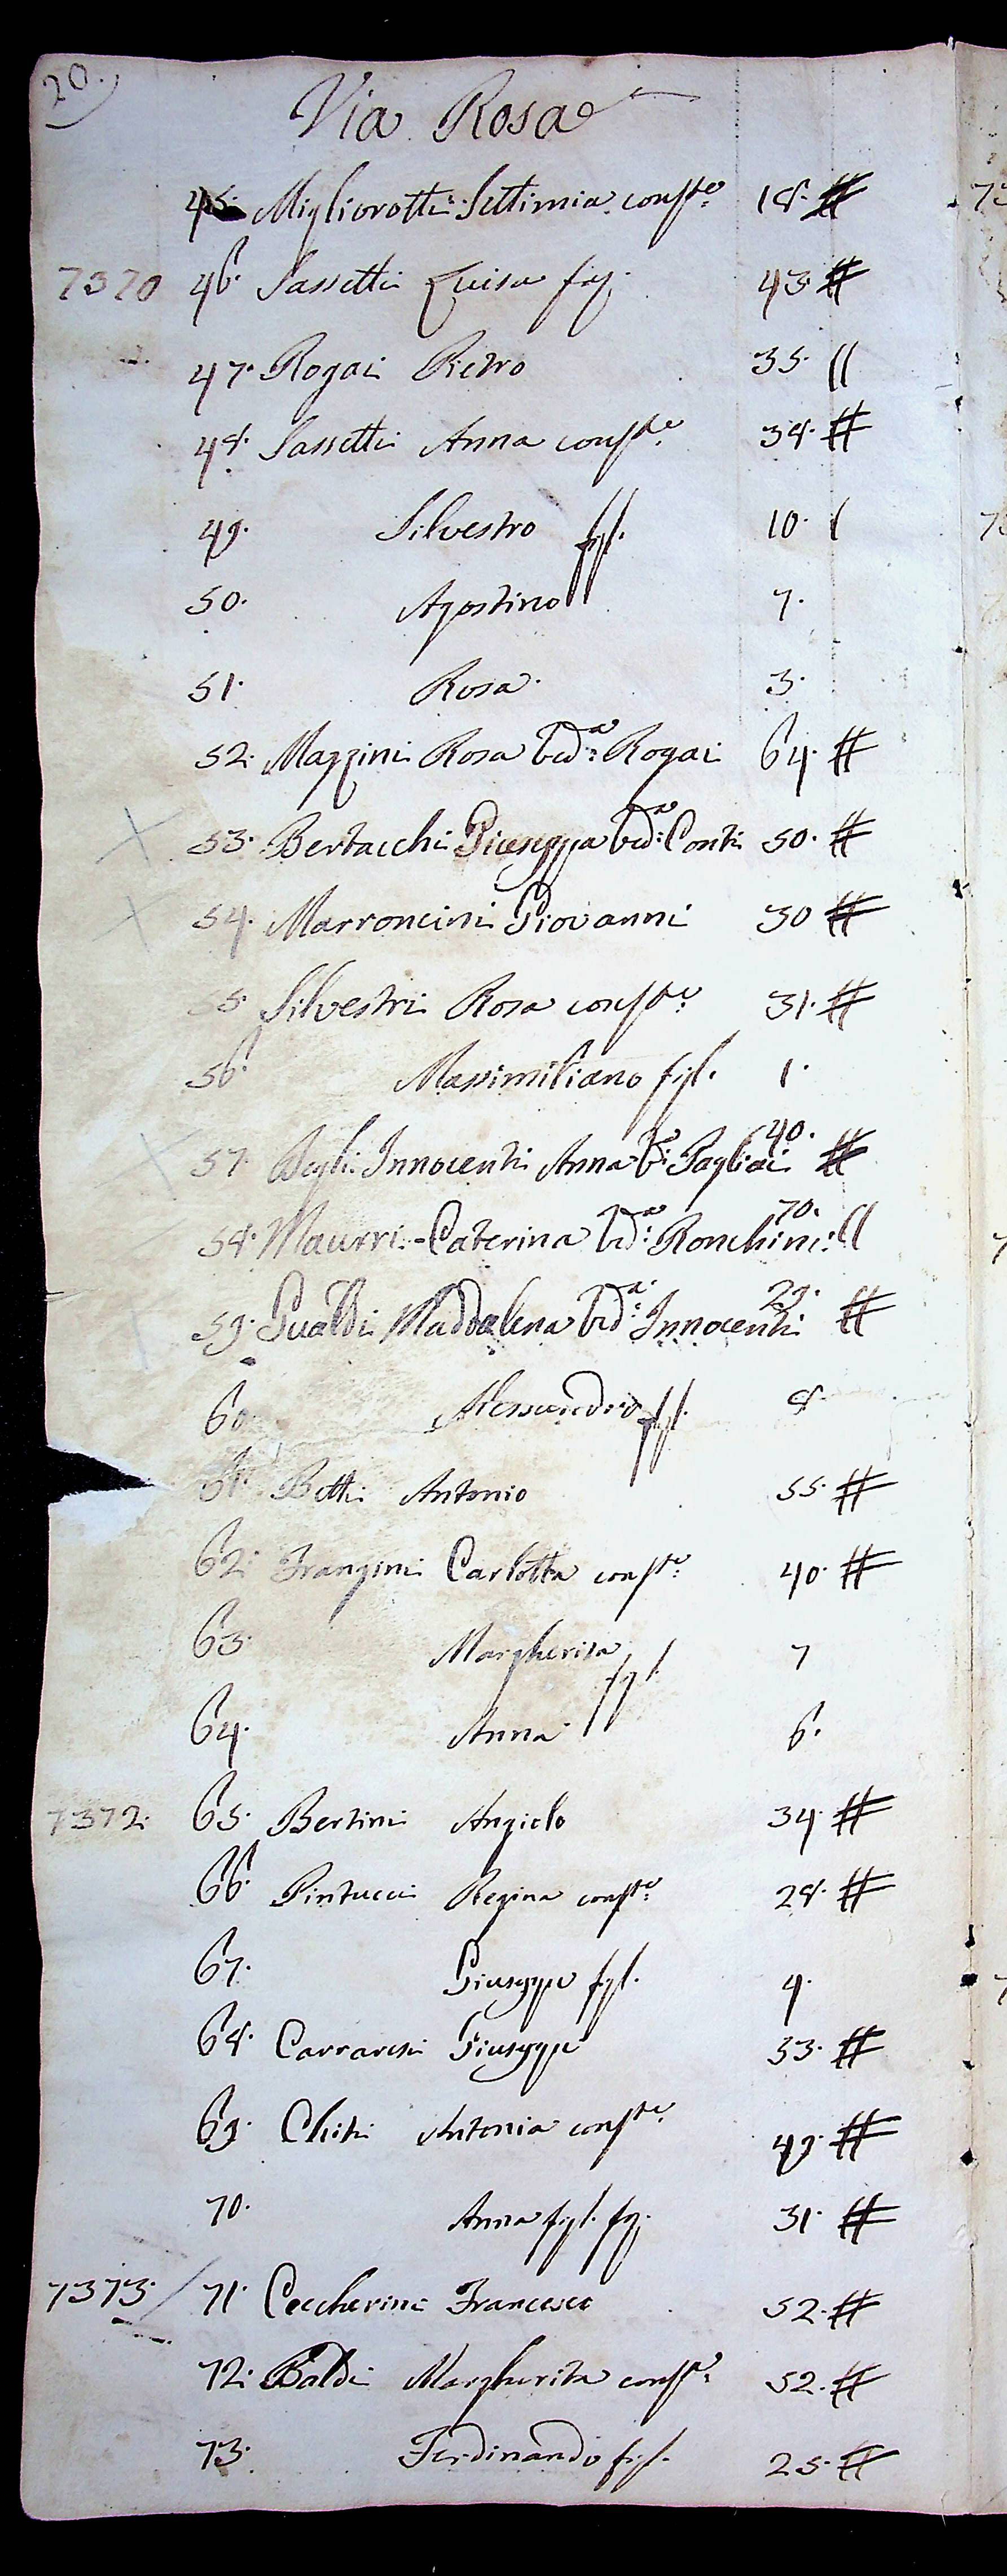 20.
Via Rosa
45. Migliorotti Settimia consrte 18. #
7370 46. Sassetti Luisa fig. 43 #
47. Rogai Pietro 35. ((
48. Sassetti Anna consrte 38. #
49. Silvestro figl. 10. (
50. Agostino 7.
51. Rosa 3.
52. Mazzini Rosa vda Rogai 64. #
53. Bertacchi Giuseppa vda Conti 50. #
54. Marroncini Giovanni 30 #
55. Silvestri Rosa consrte 31. #
56. Massimiliano figl. 1.
57. Degli Innocenti Anna va Pagliai 40. #
58. Maurri Caterina vda Ronchini 70. ((
59. Gualdi Maddalena vda Innocenti 29. #
60. Alessandro figl. 8.
61. Betti Antonio 55. #
62. Franzini Carlotta consrte 40. #
63. Margherita 7
figl.
64. Anna 6.
7372. 65. Bertini Angiolo 34. #
66. Pintucci Regina consrte 28. #
67. Giuseppe figl. 4.
68. Carraresi Giuseppe 53. #
69. Chiti Antonia consrte 49. #
70. Anna figl. fg. 31. #
7373. 71. Ceccherini Francesco 52. #
72. Baldi Margherita consrte 52. #
73. Ferdinando figl. 25. #